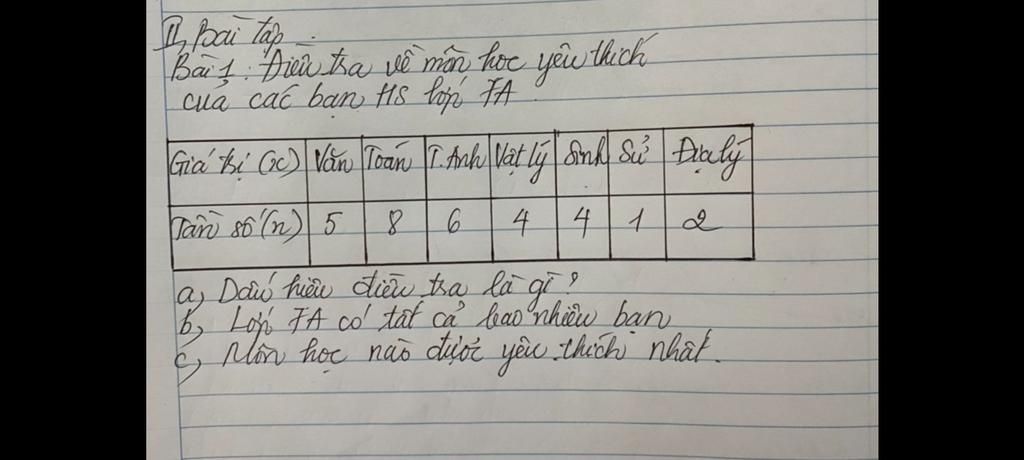 II, Bài tập
Bài 1: Điều tra về môn học yêu thích
của các bạn HS lớp 7A
Giá trị (x) Văn Toán T.Anh Vật lý Sinh Sử Địa lý
Tần số (n) 5 8 6 4 4 1 2
a, Dấu hiệu điều tra là gì?
b, Lớp 7A có tất cả bao nhiêu bạn
c, Môn học nào được yêu thích nhất.